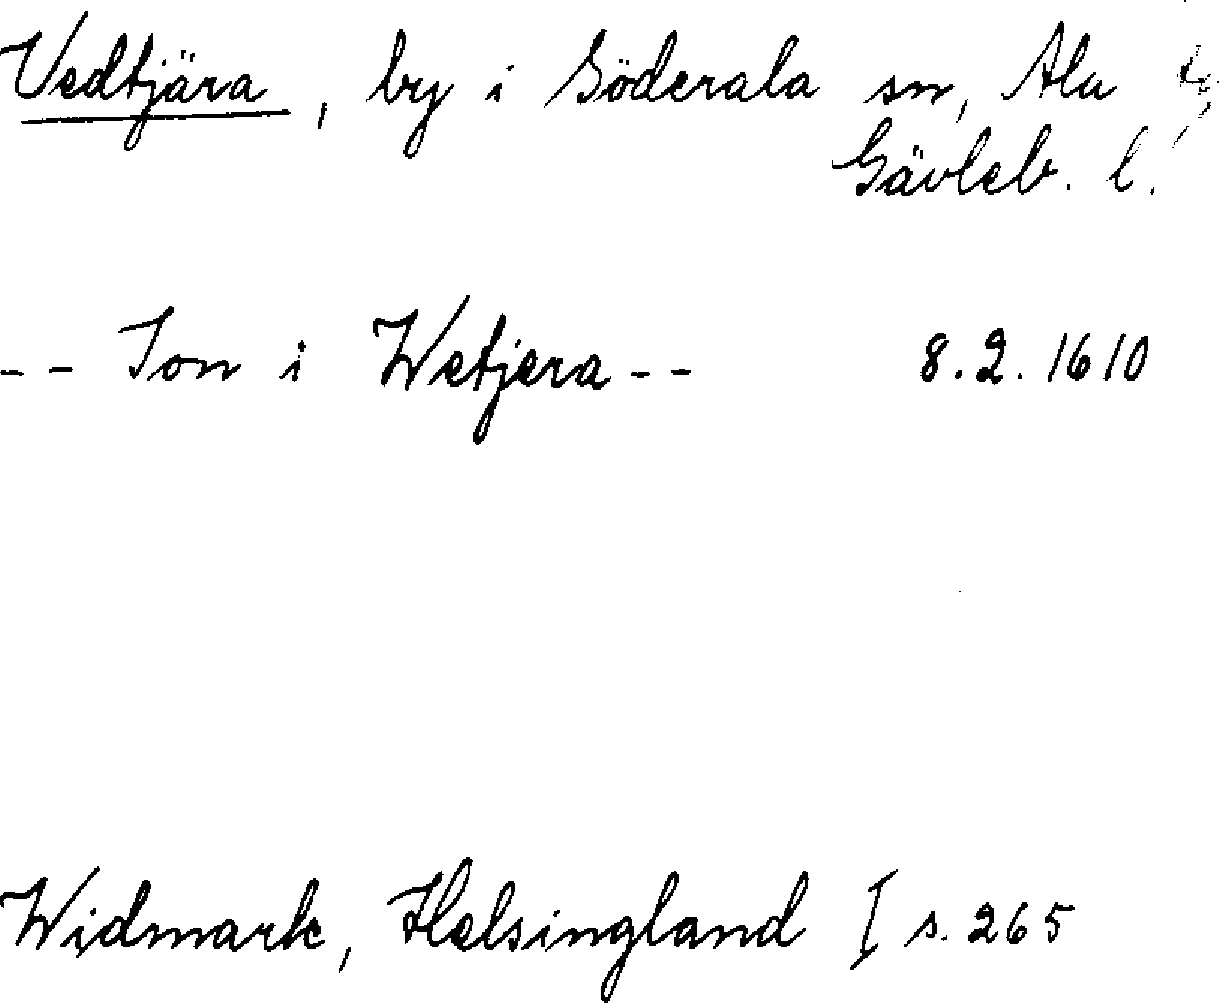 Vedtjära, by i Söderala sn, Ala
Gävleb. l.
-- Jon i Wetjera -- 8.2.1610
Widmark, Helsingland I s. 265